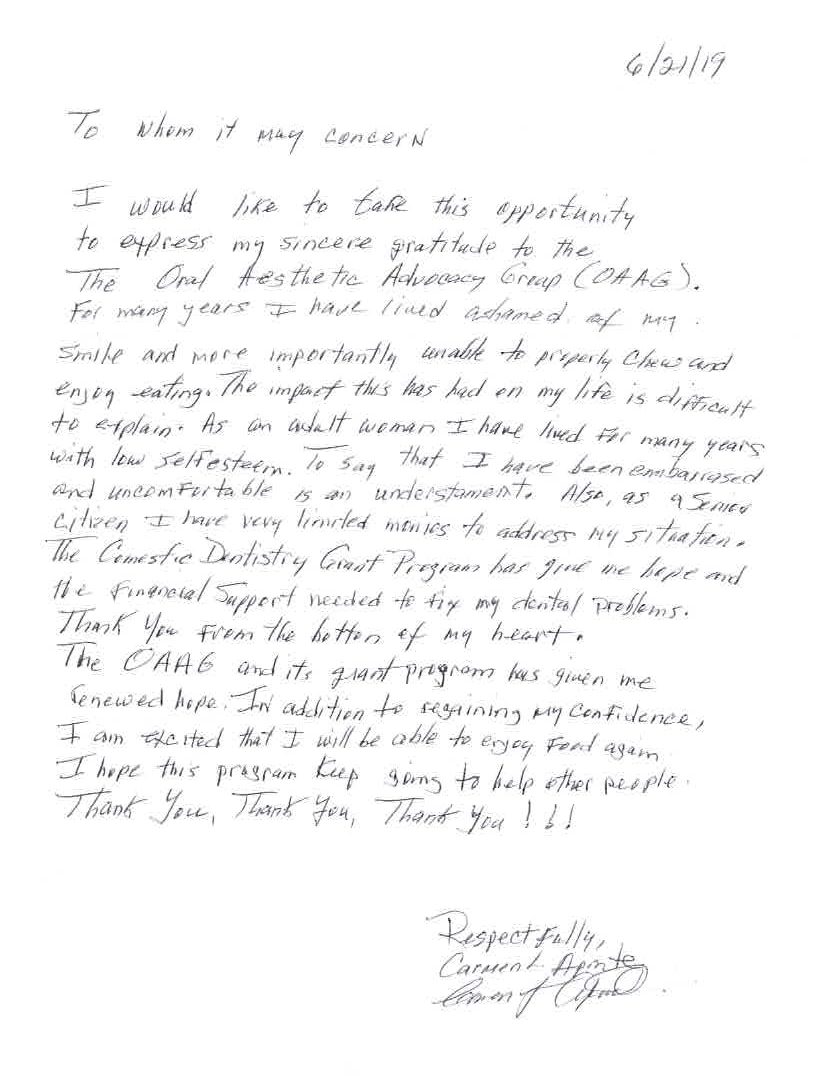 6/21/19
To whom it may concern
I would like to take this opportunity
to express my sincere gratitude to the
The Oral Aesthetic Advocacy Group (OAAG).
For many years I have lived ashamed of my
smile and more importantly unable to properly chew and
enjoy eating. The impact this has had on my life is difficult
to explain. As an adult woman I have lived for many years
with low selfesteem. To say that I have been embarrased
and uncomfortable is an understament. Also, as a Senior
citizen I have very limited monies to address my situation.
The Comestic Dentistry Grant Program has give me hope and
the Financial Support needed to fix my dental problems.
Thank You from the botton of my heart.
The OAAG and its grant program has given me
renewed hope. In addition to regaining my confidence,
I am excited that I will be able to enjoy food again
I hope this program keep going to help other people.
Thank You, Thank You, Thank You!!!
Respectfully,
Carmen L. Aponte